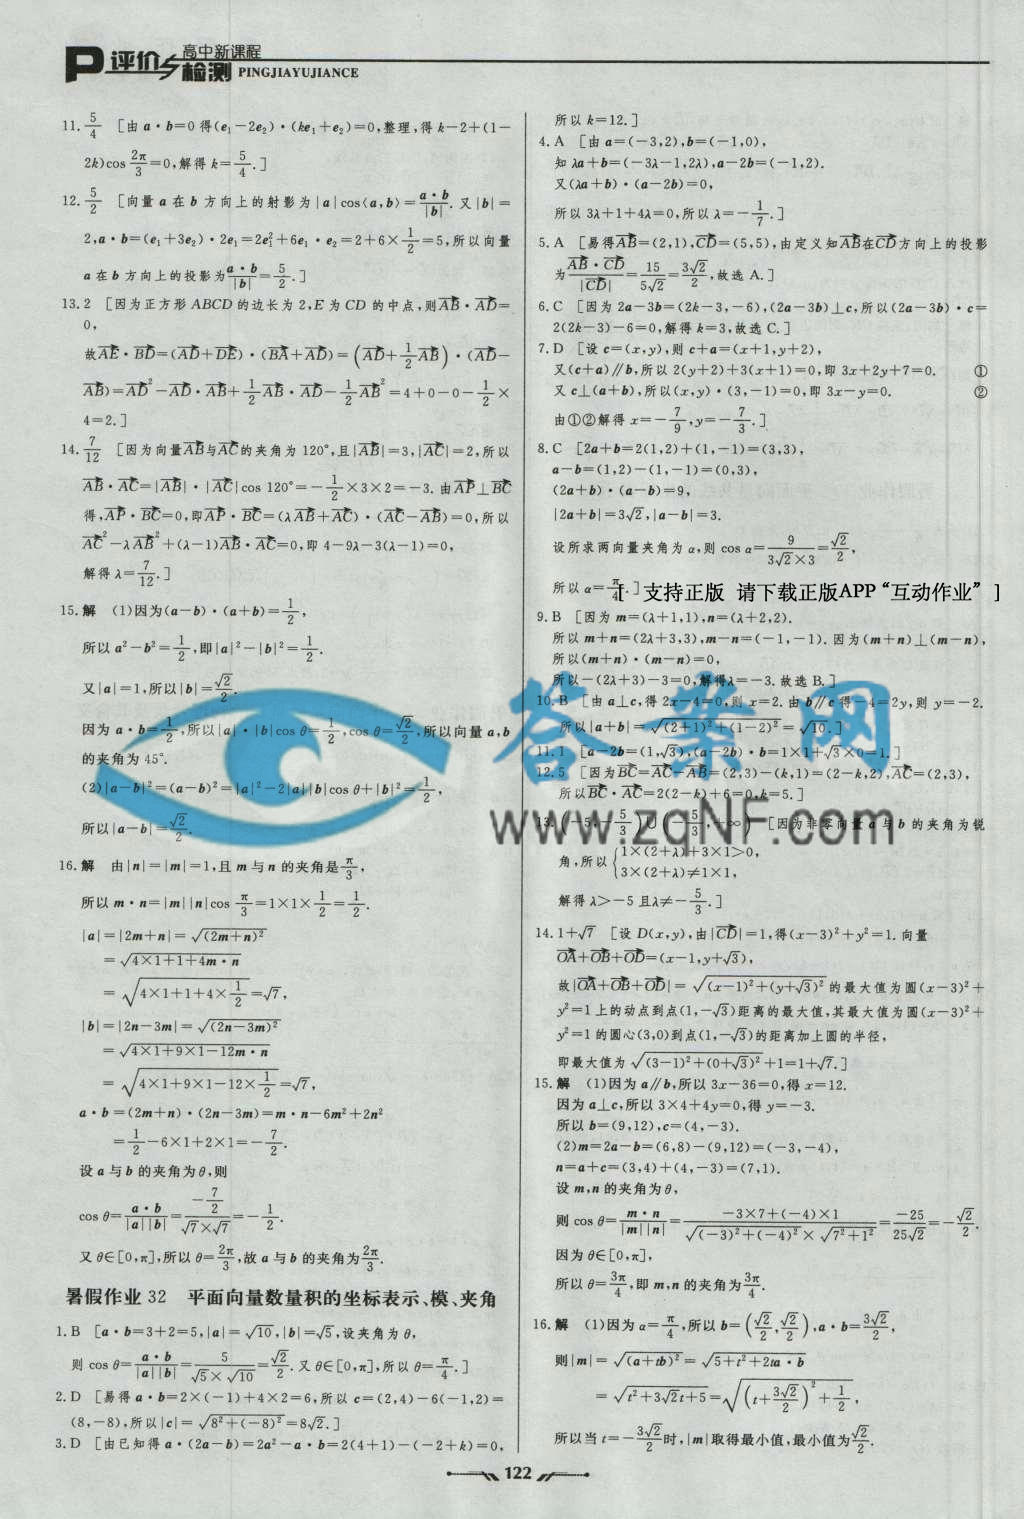 P 评价与检测 高中新课程
PINGJIAYUJIANCE
11. 5/4 [由 a·b=0 得(e₁-2e₂)·(ke₁+e₂)=0,整理,得 k-2+(1-
2k)cos 2π/3=0,解得 k=5/4.]
12. 5/2 [向量 a 在 b 方向上的射影为|a|cos⟨a,b⟩=a·b/|b|. 又|b|=
2,a·b=(e₁+3e₂)·2e₁=2e₁²+6e₁·e₂=2+6×1/2=5,所以向量
a 在 b 方向上的投影为 a·b/|b|=5/2.]
13. 2 [因为正方形 ABCD 的边长为 2,E 为 CD 的中点,则AB·AD=
0,
故AE·BD=(AD+DE)·(BA+AD)=(AD+1/2AB)·(AD-
AB)=AD²-AD·AB+1/2AB·AD-1/2AB²=4+0-0-1/2×
4=2.]
14. 7/12 [因为向量AB与AC的夹角为 120°,且|AB|=3,|AC|=2,所以
AB·AC=|AB|·|AC|cos 120°=-1/2×3×2=-3. 由AP⊥BC
得,AP·BC=0,即AP·BC=(λAB+AC)·(AC-AB)=0,所以
AC²-λAB²+(λ-1)AB·AC=0,即 4-9λ-3(λ-1)=0,
解得 λ=7/12.]
15. 解 (1)因为(a-b)·(a+b)=1/2,
所以 a²-b²=1/2,即|a|²-|b|²=1/2.
又|a|=1,所以|b|=√2/2.
因为 a·b=1/2,所以|a|·|b|cos θ=1/2,cos θ=√2/2,所以向量 a,b
的夹角为 45°.
(2)|a-b|²=(a-b)²=|a|²-2|a||b|cos θ+|b|²=1/2,
所以|a-b|=√2/2.
16. 解 由|n|=|m|=1,且 m 与 n 的夹角是π/3,
所以 m·n=|m||n|cos π/3=1×1×1/2=1/2.
|a|=|2m+n|=√(2m+n)²
=√4×1+1+4m·n
=√4×1+1+4×1/2=√7,
|b|=|2n-3m|=√(2n-3m)²
=√4×1+9×1-12m·n
=√4×1+9×1-12×1/2=√7,
a·b=(2m+n)·(2n-3m)=m·n-6m²+2n²
=1/2-6×1+2×1=-7/2.
设 a 与 b 的夹角为 θ,则
cos θ=a·b/|a||b|=(-7/2)/(√7×√7)=-1/2.
又 θ∈[0,π],所以 θ=2π/3,故 a 与 b 的夹角为2π/3.
暑假作业 32 平面向量数量积的坐标表示、模、夹角
1. B [a·b=3+2=5,|a|=√10,|b|=√5,设夹角为 θ,
则 cos θ=a·b/|a||b|=5/(√5×√10)=√2/2. 又 θ∈[0,π],所以 θ=π/4.]
2. D [易得 a·b=2×(-1)+4×2=6,所以 c=(2,4)-6(-1,2)=
(8,-8),所以|c|=√8²+(-8)²=8√2.]
3. D [由已知得 a·(2a-b)=2a²-a·b=2(4+1)-(-2+k)=0,
所以 k=12.]
4. A [由 a=(-3,2),b=(-1,0),
知 λa+b=(-3λ-1,2λ),a-2b=(-1,2).
又(λa+b)·(a-2b)=0,
所以 3λ+1+4λ=0,所以 λ=-1/7.]
5. A [易得AB=(2,1),CD=(5,5),由定义知AB在CD方向上的投影
为 AB·CD/|CD|=15/5√2=3√2/2,故选 A.]
6. C [因为 2a-3b=(2k-3,-6),(2a-3b)⊥c,所以(2a-3b)·c=
2(2k-3)-6=0,解得 k=3,故选 C.]
7. D [设 c=(x,y),则 c+a=(x+1,y+2),
又(c+a)∥b,所以 2(y+2)+3(x+1)=0,即 3x+2y+7=0. ①
又 c⊥(a+b),所以(x,y)·(3,-1)=0,即 3x-y=0. ②
由①②解得 x=-7/9,y=-7/3.]
8. C [2a+b=2(1,2)+(1,-1)=(3,3),
a-b=(1,2)-(1,-1)=(0,3),
(2a+b)·(a-b)=9,
|2a+b|=3√2,|a-b|=3.
设所求两向量夹角为 α,则 cos α=9/(3√2×3)=√2/2,
所以 α=π/4.]
[ 支持正版 请下载正版APP“互动作业” ]
9. B [因为 m=(λ+1,1),n=(λ+2,2).
所以 m+n=(2λ+3,3),m-n=(-1,-1). 因为(m+n)⊥(m-n),
所以(m+n)·(m-n)=0,
所以-(2λ+3)-3=0,解得λ=-3. 故选 B.]
10. B [由 a⊥c,得 2x-4=0,则 x=2. 由 b∥c 得-4=2y,则 y=-2.
所以|a+b|=√(2+1)²+(1-2)²=√10.]
11. 1 [a-2b=(1,√3),(a-2b)·b=1×1+√3×0=1.]
12. 5 [因为BC=AC-AB=(2,3)-(k,1)=(2-k,2),AC=(2,3),
所以BC·AC=2(2-k)+6=0,k=5.]
13. (-5,-5/3)∪(-5/3,+∞) [因为非零向量 a 与 b 的夹角为锐
角,所以{1×(2+λ)+3×1>0,
3×(2+λ)≠1×1,
解得 λ>-5 且λ≠-5/3.]
14. 1+√7 [设 D(x,y),由|CD|=1,得(x-3)²+y²=1. 向量
OA+OB+OD=(x-1,y+√3),
故|OA+OB+OD|=√(x-1)²+(y+√3)²的最大值为圆(x-3)²+
y²=1 上的动点到点(1,-√3)距离的最大值,其最大值为圆(x-3)²+
y²=1 的圆心(3,0)到点(1,-√3)的距离加上圆的半径,
即最大值为√(3-1)²+(0+√3)²+1=1+√7.]
15. 解 (1)因为 a∥b,所以 3x-36=0,得 x=12.
因为 a⊥c,所以 3×4+4y=0,得 y=-3.
所以 b=(9,12),c=(4,-3).
(2)m=2a-b=(6,8)-(9,12)=(-3,-4),
n=a+c=(3,4)+(4,-3)=(7,1).
设 m,n 的夹角为 θ,
则 cos θ=m·n/|m||n|=(-3×7+(-4)×1)/(√(-3)²+(-4)²×√7²+1²)=-25/25√2=-√2/2.
因为 θ∈[0,π],
所以 θ=3π/4,即 m,n 的夹角为3π/4.
16. 解 (1)因为 α=π/4,所以 b=(√2/2,√2/2),a·b=3√2/2,
则|m|=√(a+tb)²=√5+t²+2ta·b
=√t²+3√2t+5=√(t+3√2/2)²+1/2,
所以当 t=-3√2/2时,|m|取得最小值,最小值为√2/2.
答案网
www.zqNF.com
122